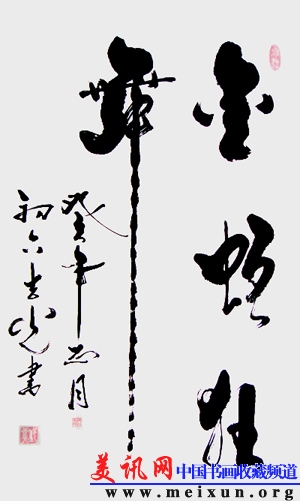 金蛇狂
舞
癸年正月
初六 書
美讯网 中国书画收藏频道
www.meixun.org